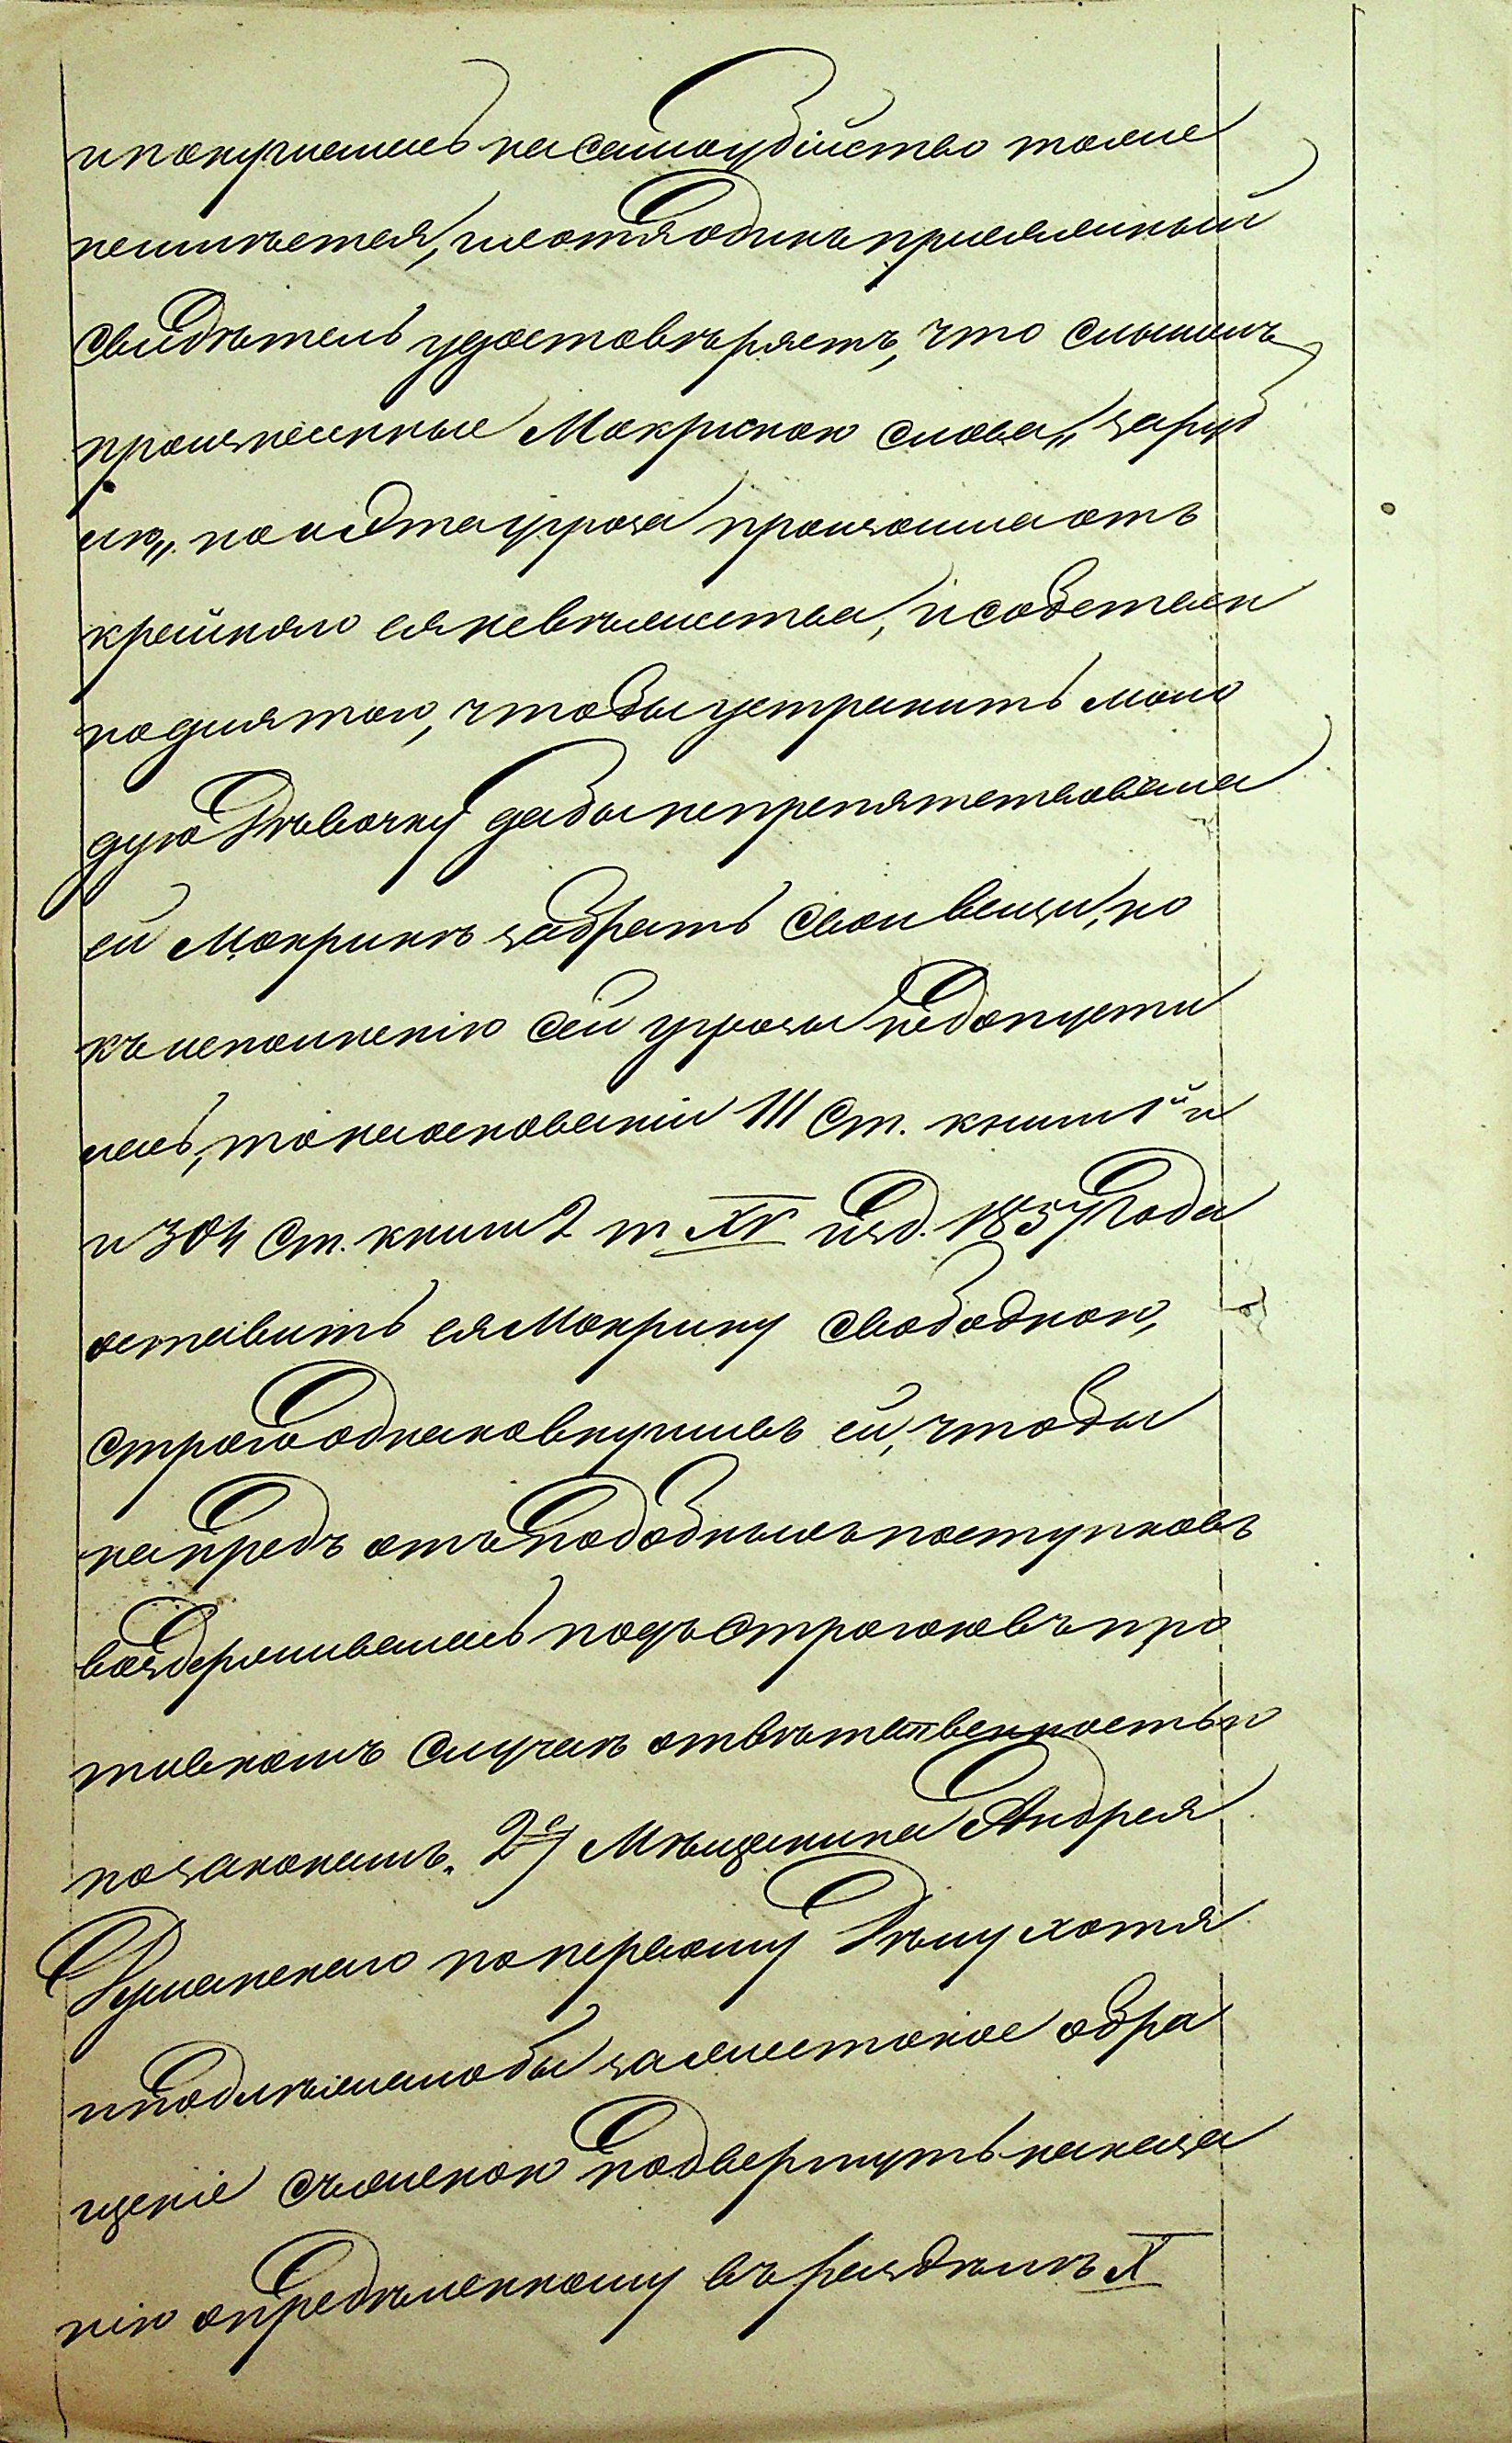 и покушалась на самоубійство тоже
неимѣется, и хотя одинъ присяжный
свидѣтель удостовѣряетъ, что слышалъ
произнесенные Мокриною слова „зарѣж
ик„ но и эта угроза произошла отъ
крайняго ея невѣжества, и собственн
поднятою, чтобы устранить моло
дую дѣвочку дабы непрепятствовала
ей Мокринѣ забрать свои вещи, но
къ исполненію сей угрозы недопусти
лась, то на основаніи 111 ст. книги 1й и
и 304 ст. книги 2 т. XV изд. 1857 года
оставить ея Мокрину свободною,
строго однако внушивъ ей, чтобы
напредъ отъ подобныхъ поступковъ
воздерживалась подъ строгою въ про
тивномъ случаѣ отвѣтственностью
по законамъ. 2е) Мѣщанина Андрея
по первому дѣлу хотя
и подлежалобы за жестокое обра
щеніе съ женою подвергнуть наказа
нію опредѣленному въ раздѣлѣ X